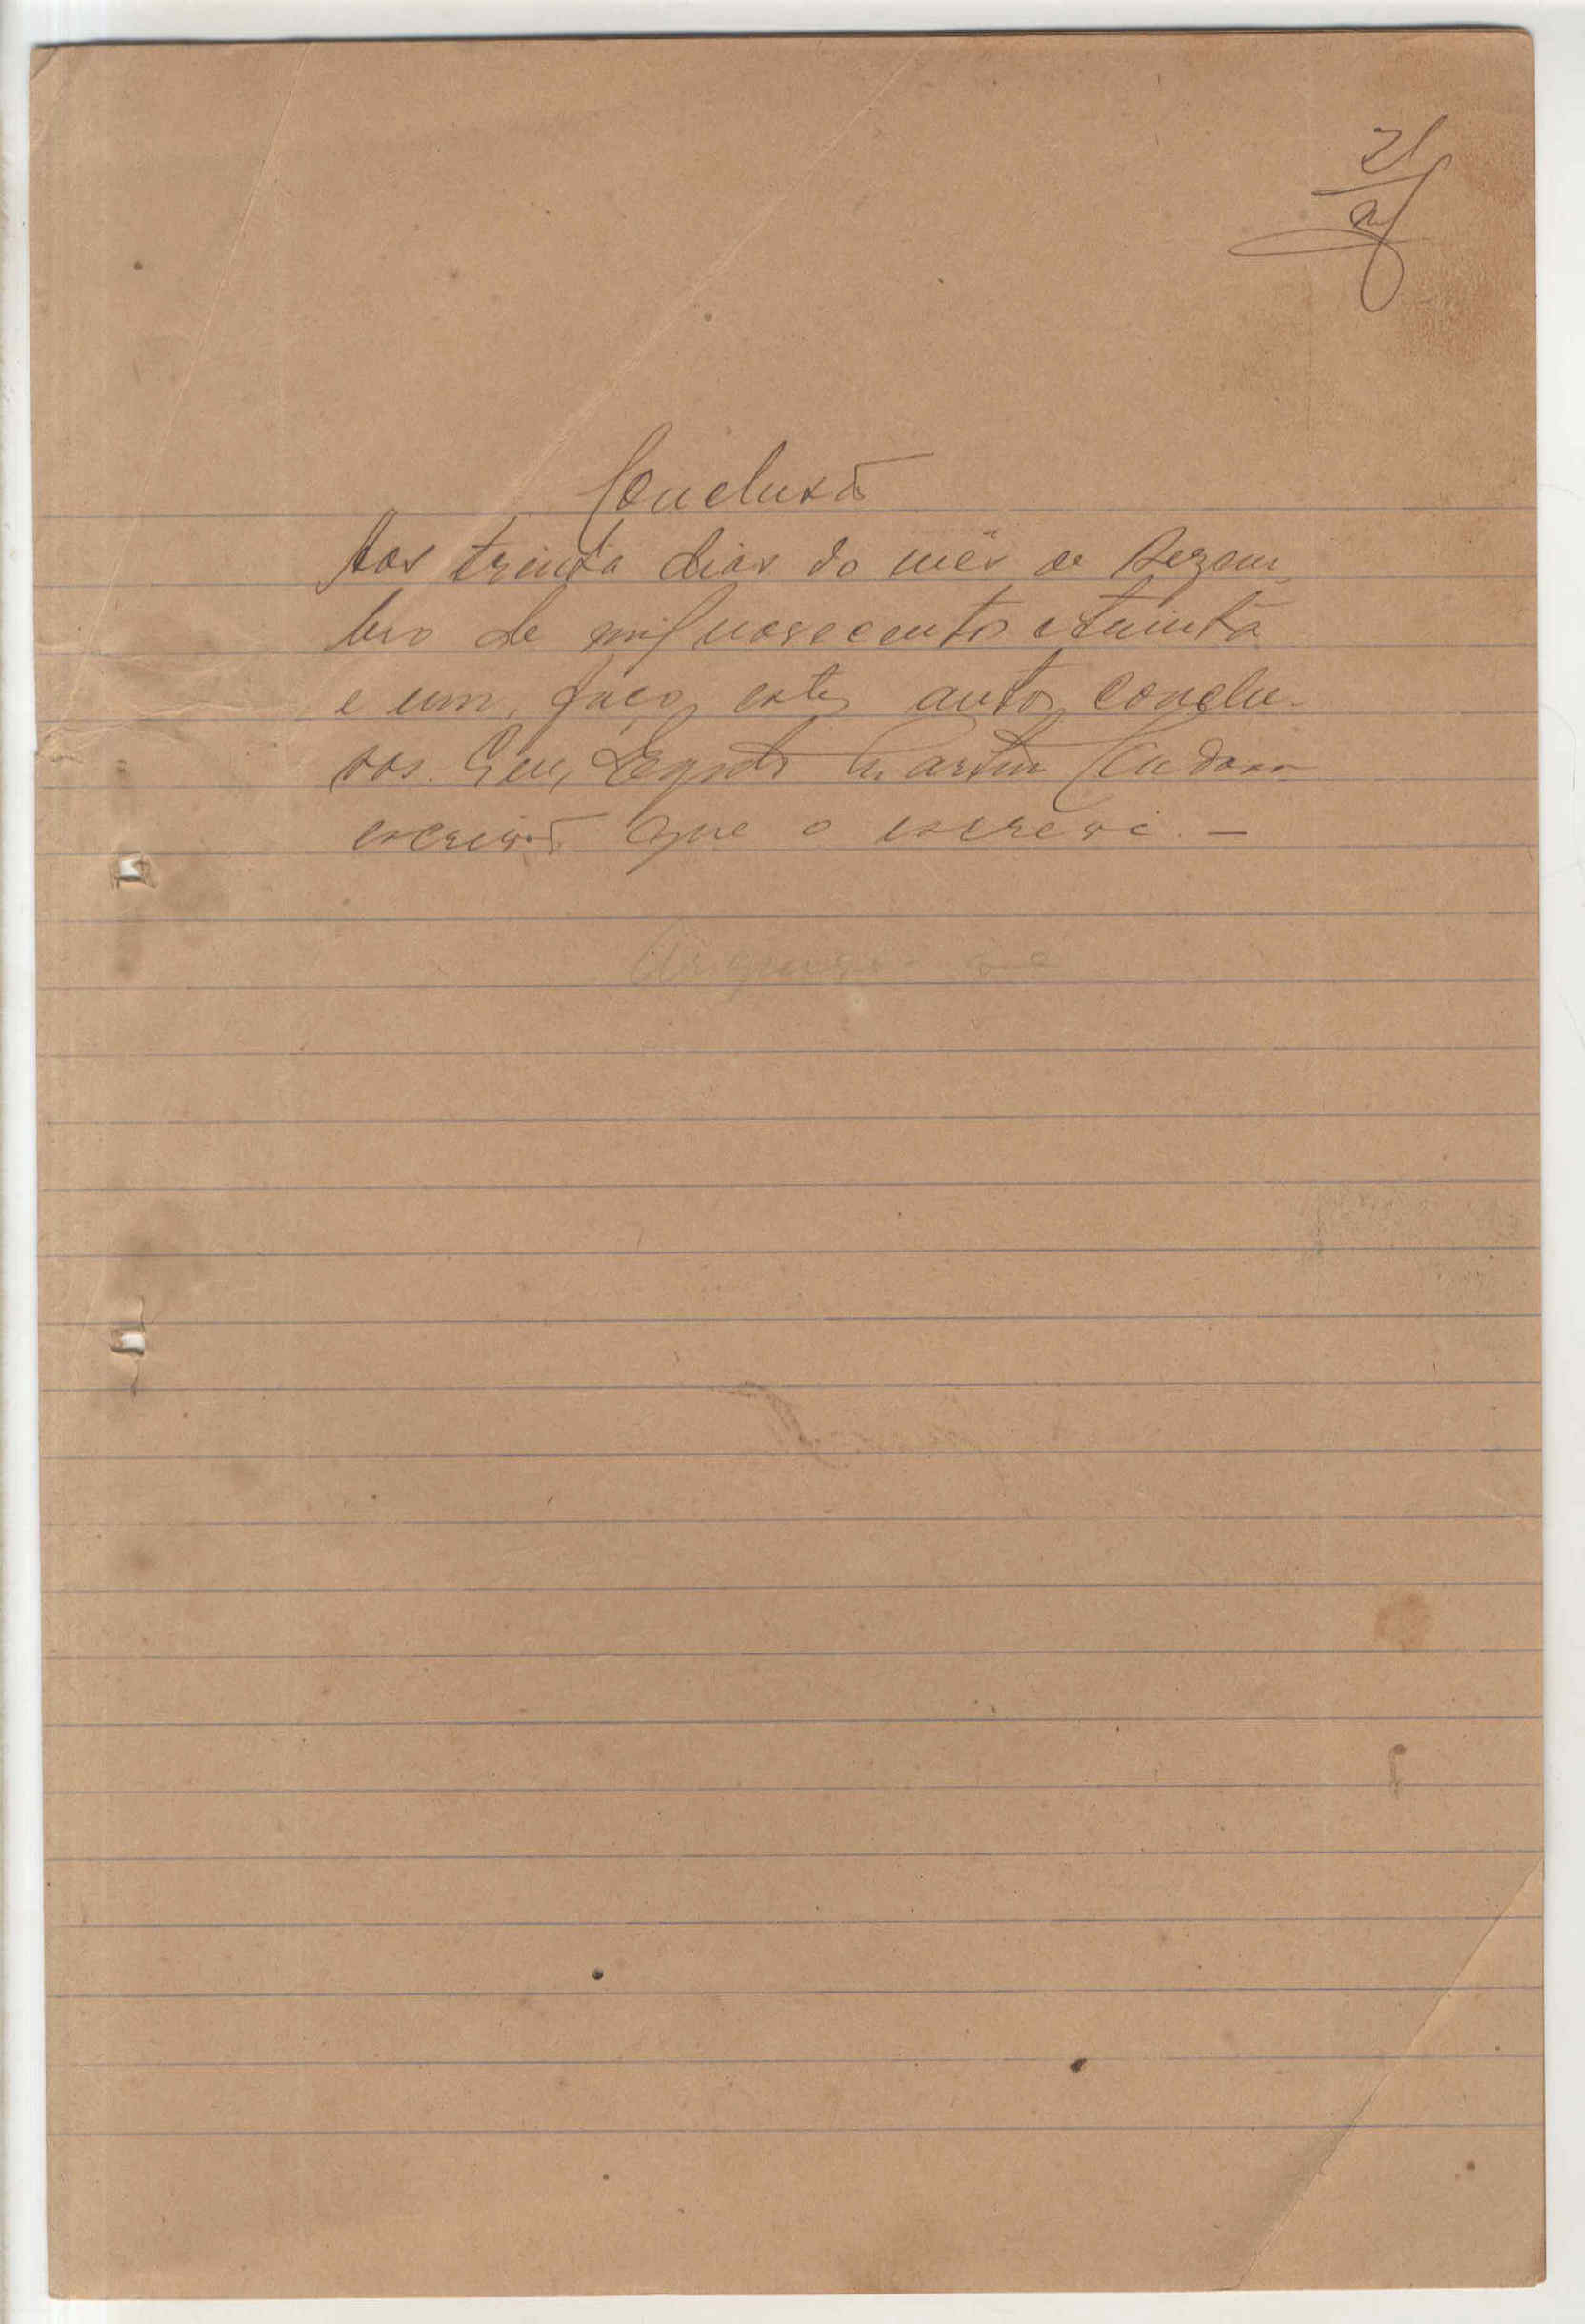 21
Conclusão
Aos trinta dias do mês de Dezem-
bro de mil novecentos e trinta
e um, faço estes autos conclu-
sos. Eu, Martins
escrivão que o escrevi. —